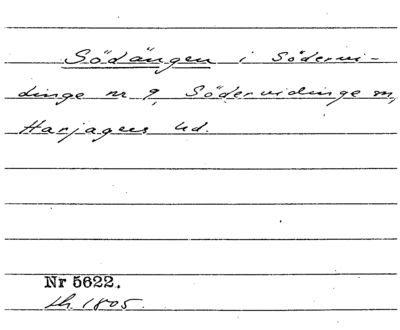 Södängen i Södervi-
dinge nr 9, Södervidinge sn,
Harjagers hd.
Nr 5622.
Lh. 1805.